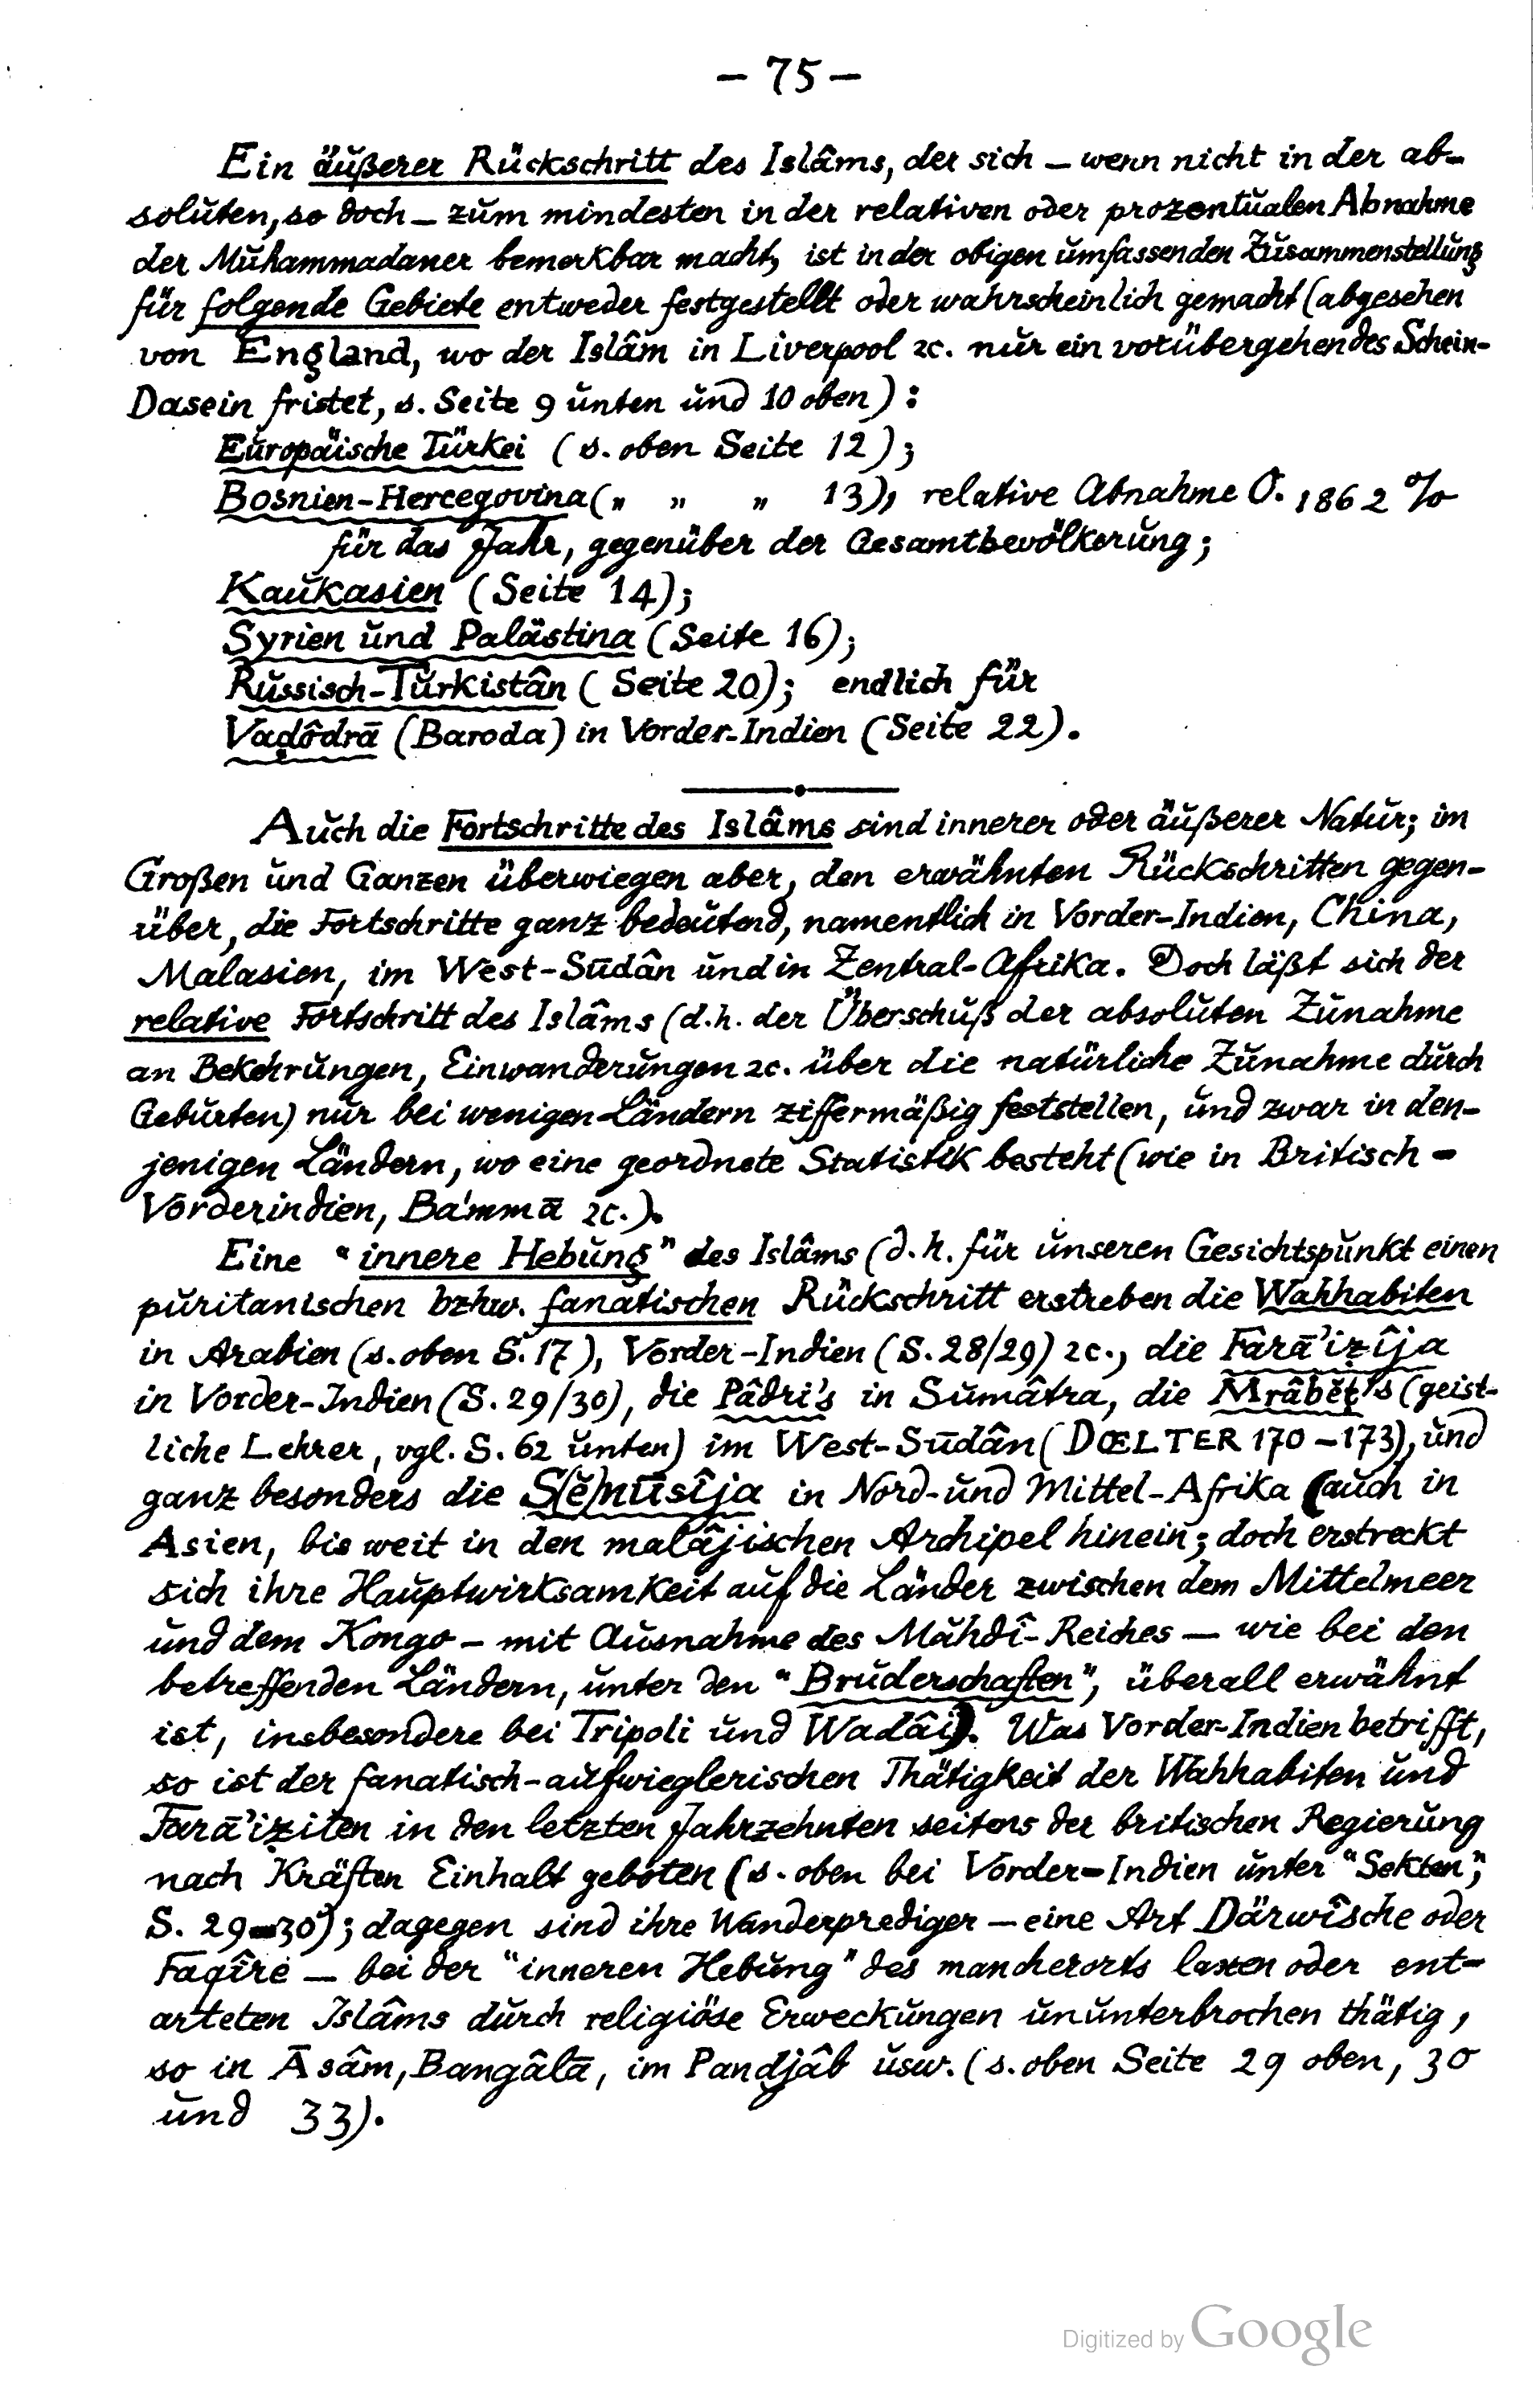 — 75 —
Ein äußerer Rückschritt des Islâms, der sich — wenn nicht in der ab-
soluten, so doch — zum mindesten in der relativen oder prozentualen Abnahme
der Muhammadaner bemerkbar macht, ist in der obigen umfassenden Zusammenstellung
für folgende Gebiete entweder festgestellt oder wahrscheinlich gemacht (abgesehen
von England, wo der Islâm in Liverpool ꝛc. nur ein vorübergehendes Schein-
Dasein fristet, s. Seite 9 unten und 10 oben):
Europäische Türkei (s. oben Seite 12);
Bosnien-Hercegovina („ „ „ 13), relative Abnahme 0.1862 %
für das Jahr, gegenüber der Gesamtbevölkerung;
Kaukasien (Seite 14);
Syrien und Palästina (Seite 16);
Russisch-Turkistân (Seite 20); endlich für
Vaḍôdrā (Baroda) in Vorder-Indien (Seite 22).
Auch die Fortschritte des Islâms sind innerer oder äußerer Natur; im
Großen und Ganzen überwiegen aber, den erwähnten Rückschritten gegen-
über, die Fortschritte ganz bedeutend, namentlich in Vorder-Indien, China,
Malasien, im West-Sūdân und in Zentral-Afrika. Doch läßt sich der
relative Fortschritt des Islâms (d.h. der Überschuß der absoluten Zunahme
an Bekehrungen, Einwanderungen ꝛc. über die natürliche Zunahme durch
Geburten) nur bei wenigen Ländern ziffermäßig feststellen, und zwar in den-
jenigen Ländern, wo eine geordnete Statistik besteht (wie in Britisch-
Vorderindien, Ba'mmā ꝛc.).
Eine "innere Hebung" des Islâms (d.h. für unseren Gesichtspunkt einen
puritanischen bzhw. fanatischen Rückschritt erstreben die Wahhabiten
in Arabien (s. oben S. 17), Vorder-Indien (S. 28/29) ꝛc., die Farā'iẓîja
in Vorder-Indien (S. 29/30), die Pâdri's in Sumâtra, die Mrâbĕṭ's (geist-
liche Lehrer, vgl. S. 62 unten) im West-Sūdân (DŒLTER 170–173), und
ganz besonders die S(ĕ)nūsîja in Nord- und Mittel-Afrika (auch in
Asien, bis weit in den malâjischen Archipel hinein; doch erstreckt
sich ihre Hauptwirksamkeit auf die Länder zwischen dem Mittelmeer
und dem Kongo — mit Ausnahme des Mahdî-Reiches — wie bei den
betreffenden Ländern, unter den "Bruderschaften", überall erwähnt
ist, insbesondere bei Tripoli und Wadâi). Was Vorder-Indien betrifft,
so ist der fanatisch-aufwieglerischen Thätigkeit der Wahhabiten und
Farā'iẓiten in den letzten Jahrzehnten seitens der britischen Regierung
nach Kräften Einhalt geboten (s. oben bei Vorder-Indien unter "Sekten",
S. 29–30); dagegen sind ihre Wanderprediger — eine Art Därwîsche oder
Faqîre — bei der "inneren Hebung" des mancherorts laxen oder ent-
arteten Islâms durch religiöse Erweckungen ununterbrochen thätig,
so in Āsâm, Bangâlā, im Pandjâb usw. (s. oben Seite 29 oben, 30
und 33).
Digitized by Google